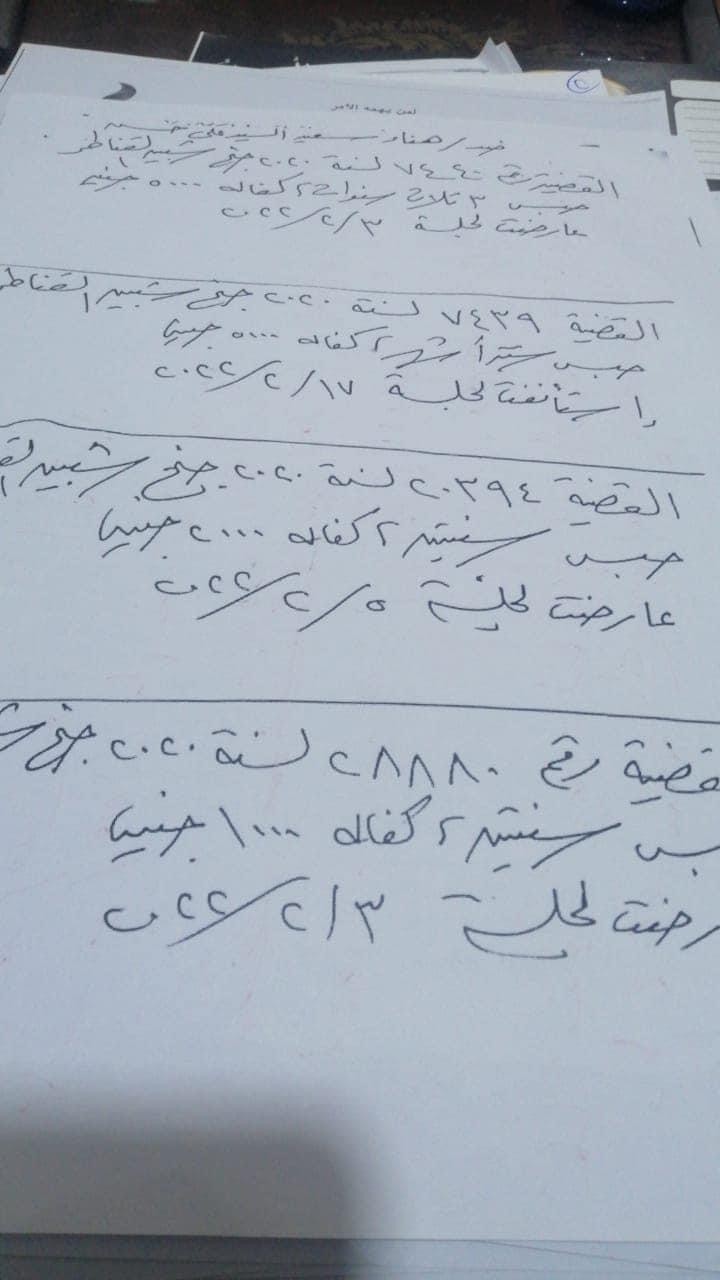 لمن يهمه الأمر
ضد / هناء سعيد السيد
القضية رقم ٧٤٤٠ لسنة ٢٠٢٠ جنح شبين القناطر
حبس ٣ ثلاث سنوات وكفاله ٥٠٠٠ جنيه
عارضت لجلسة ٣/٢/٢٠٢٢
القضية ٧٤٣٩ لسنة ٢٠٢٠ جنح شبين القناطر
حبس ستة أشهر وكفاله ٥٠٠٠ جنيها
واستأنفت لجلسة ١٧/٢/٢٠٢٢
القضية ٢٠٣٩٤ لسنة ٢٠٢٠ جنح شبين الق
حبس سنتين وكفاله ٢٠٠٠ جنيها
عارضت لجلسة ٥/٢/٢٠٢٢
قضية رقم ٢٨٨٨٠ لسنة ٢٠٢٠ جنح ش
بس سنتين وكفاله ١٠٠٠ جنيها
رضت لجلسة ٣/٢/٢٠٢٢